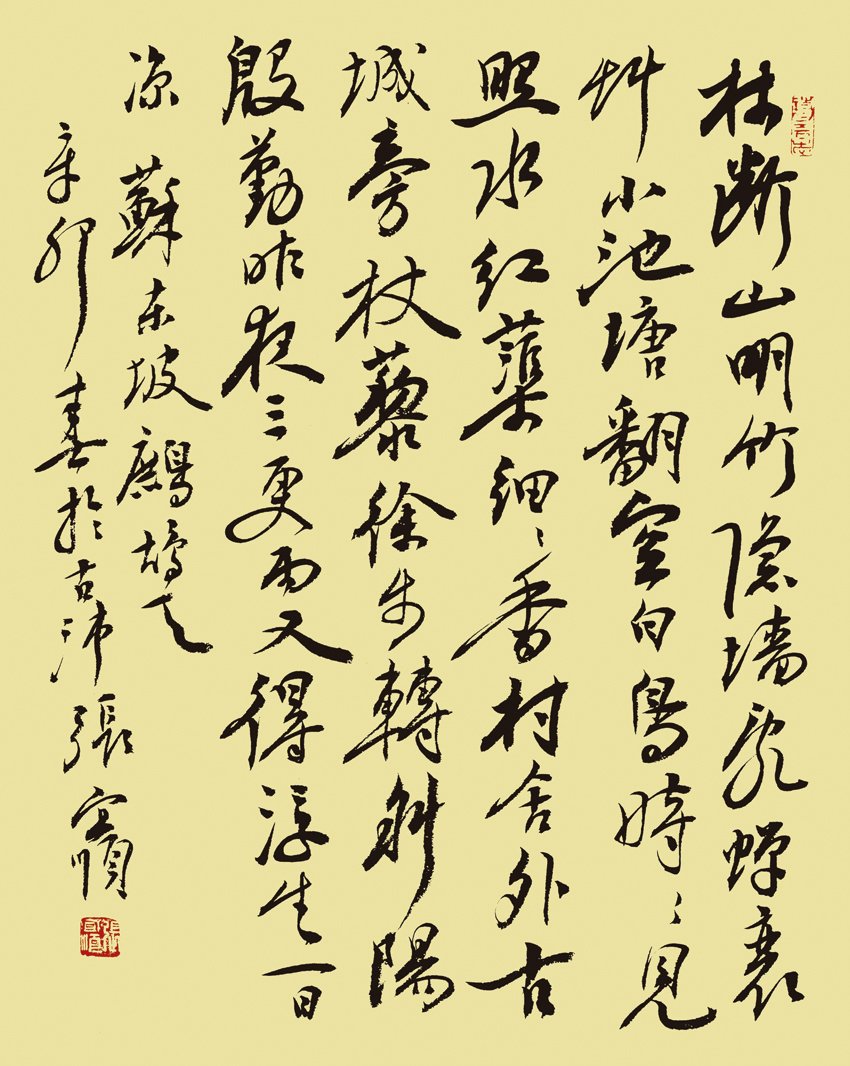 林斷山明竹隱墻亂蟬衰
艸小池塘翻空白鳥時々見
照水紅蕖細々香村舍外古
城旁杖藜徐步轉斜陽
殷勤昨夜三更雨又得浮生一日
涼 蘇東坡鷓鴣天
辛卯春於古沛張宜順